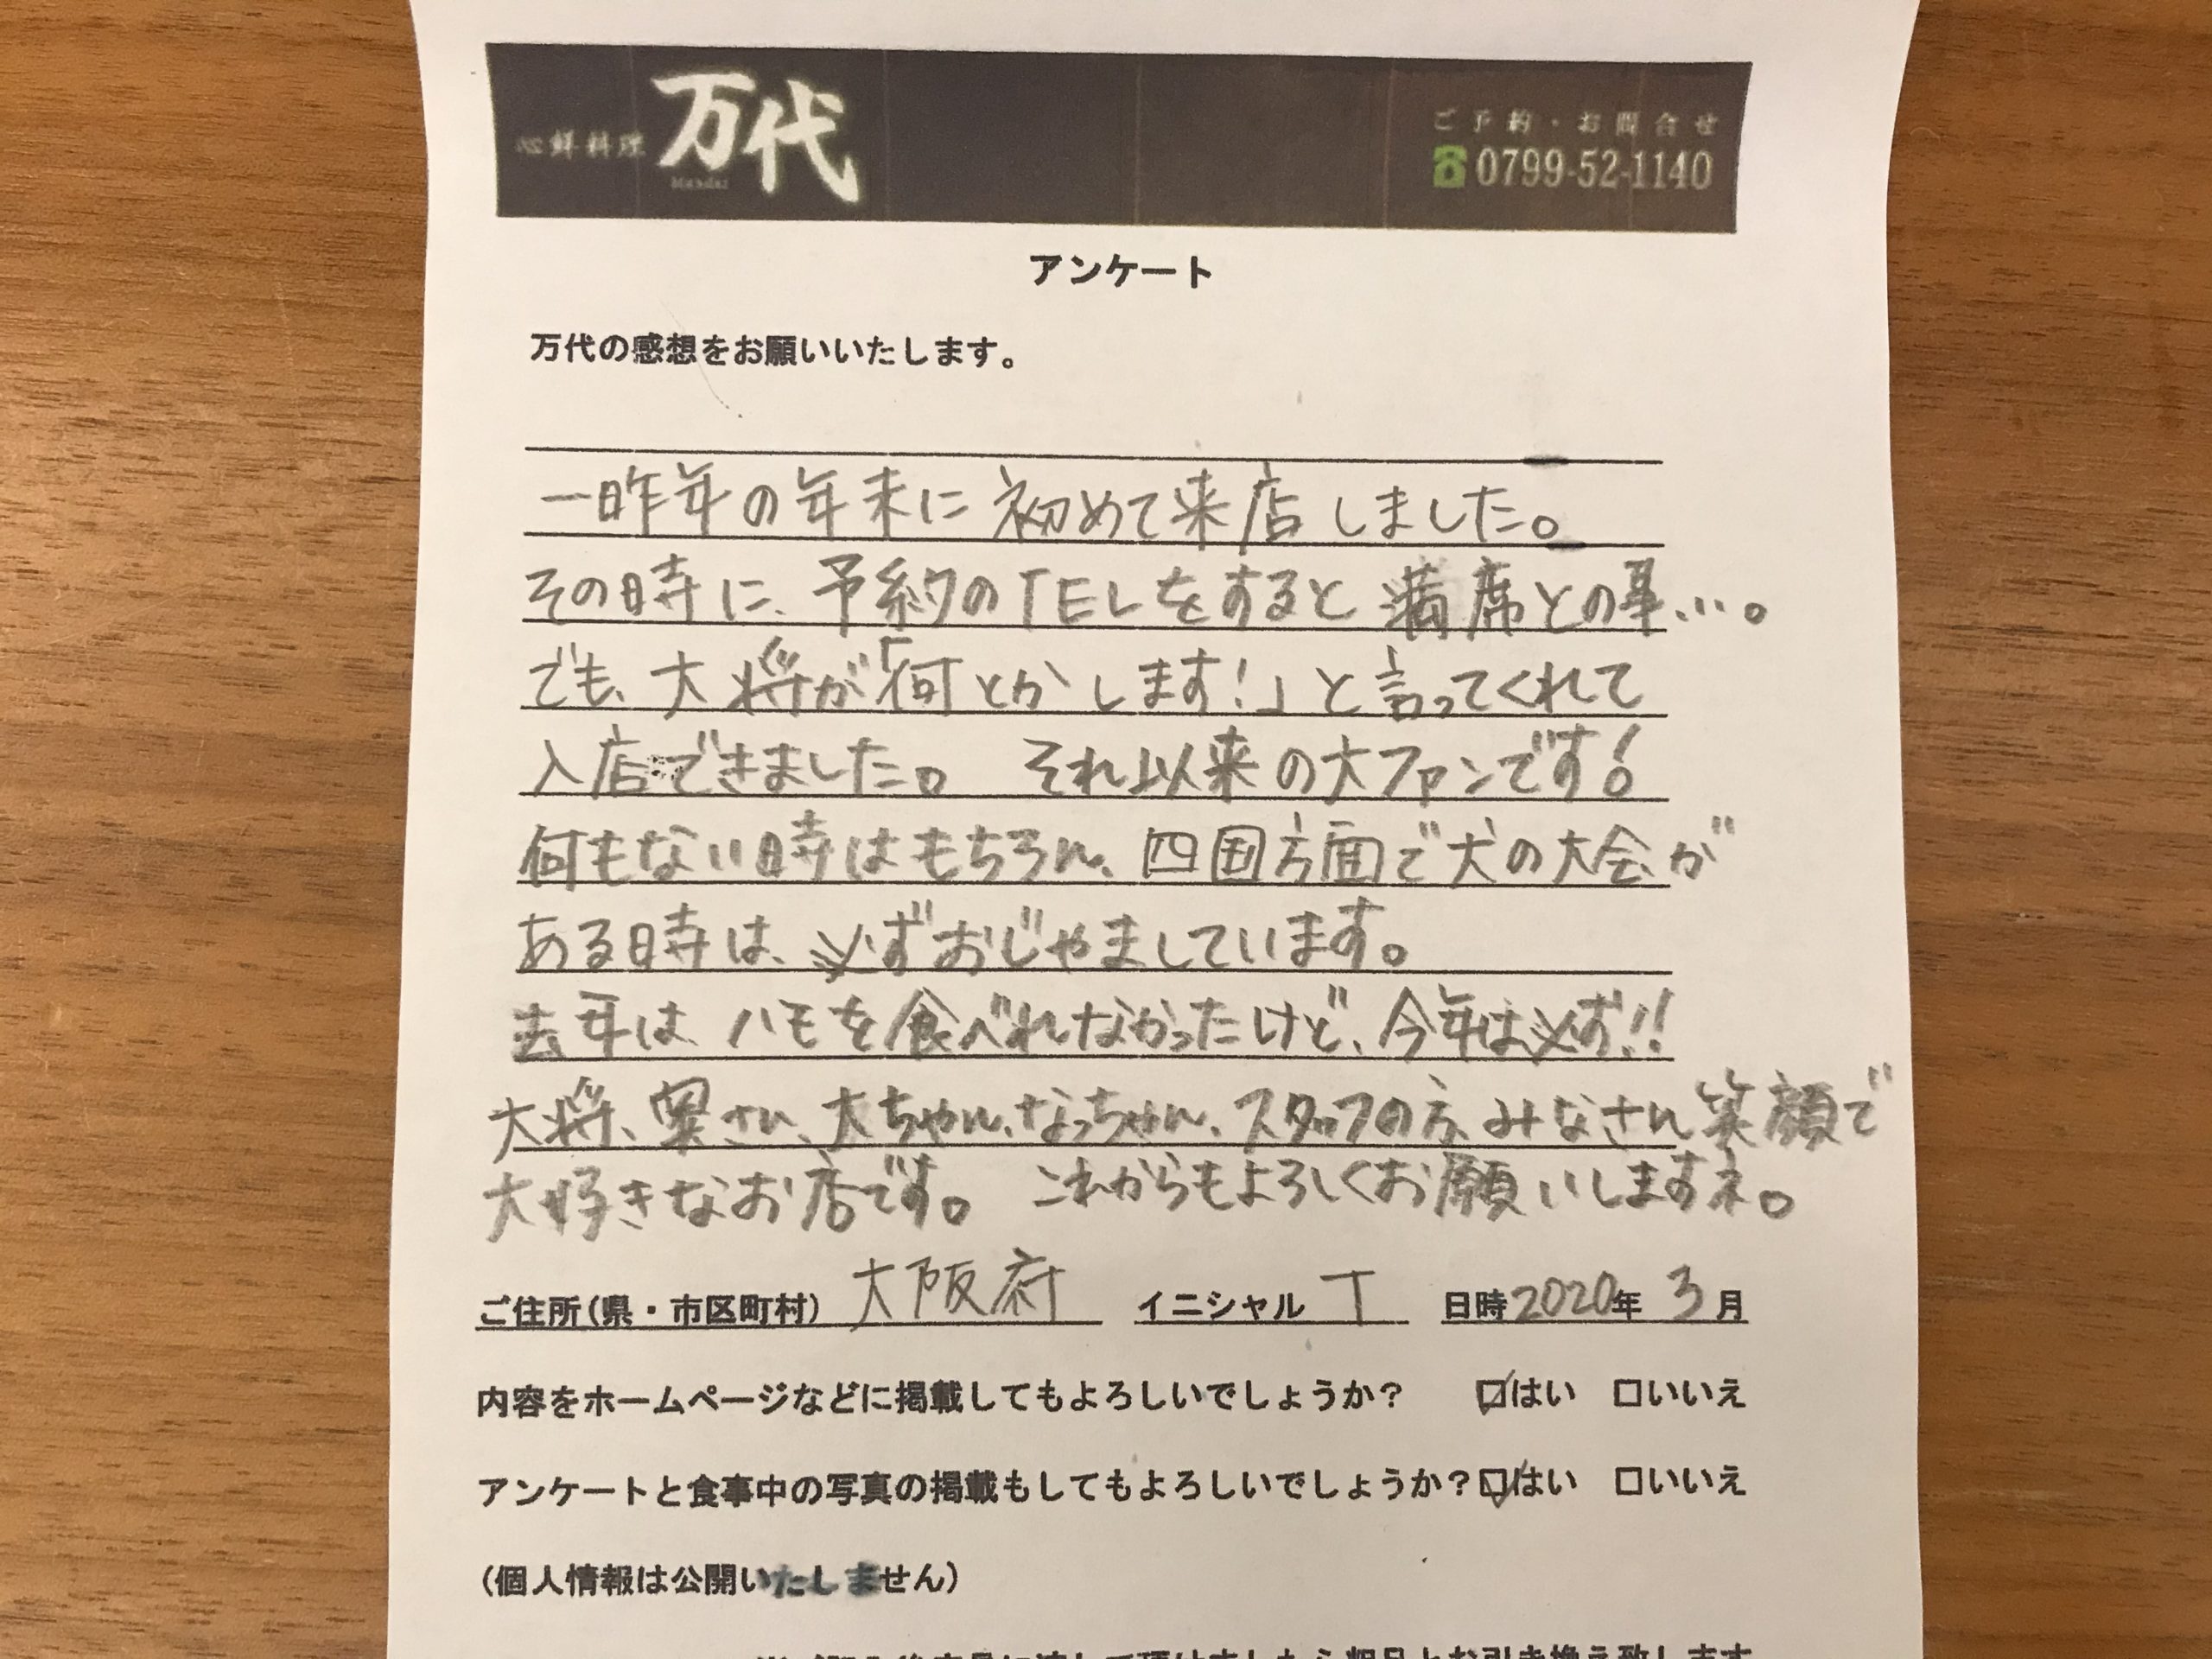 心鮮料理 万代
bandai
ご予約・お問合せ
0799-52-1140
アンケート
万代の感想をお願いいたします。
一昨年の年末に初めて来店しました。
その時に、予約のTELをすると満席との事…。
でも、大将が「何とかします!」と言ってくれて
入店できました。 それ以来の大ファンです!
何もない時はもちろん、四国方面で犬の大会が
ある時は、必ずおじゃましています。
去年は、ハモを食べれなかったけど、今年は必ず!!
大将、奥さん、大ちゃん、なっちゃん、スタッフの方、みなさん笑顔で
大好きなお店です。 これからもよろしくお願いしますネ。
ご住所(県・市区町村) 大阪府 イニシャル T 日時2020年 3月
内容をホームページなどに掲載してもよろしいでしょうか? ☑はい □いいえ
アンケートと食事中の写真の掲載もしてもよろしいでしょうか?☑はい □いいえ
(個人情報は公開いたしません)